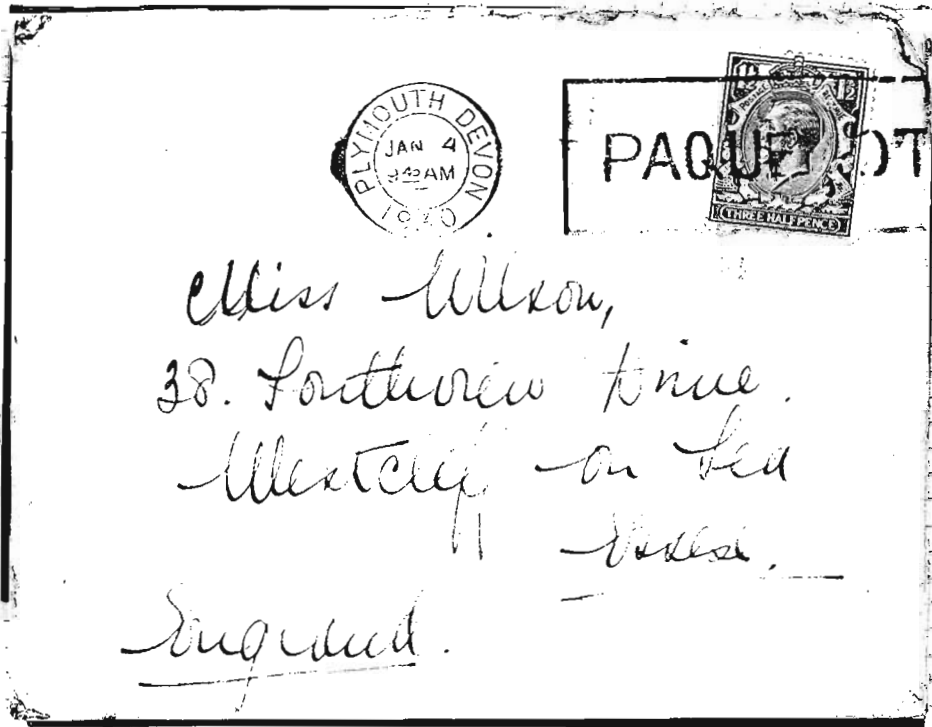 PLYMOUTH DEVON
JAN 4
9 45 AM
1930
PAQUEBOT
POSTAGE REVENUE
THREE HALFPENCE
Miss Wilson,
38. Southview Drive.
Westcliff on Sea
Essex.
England.